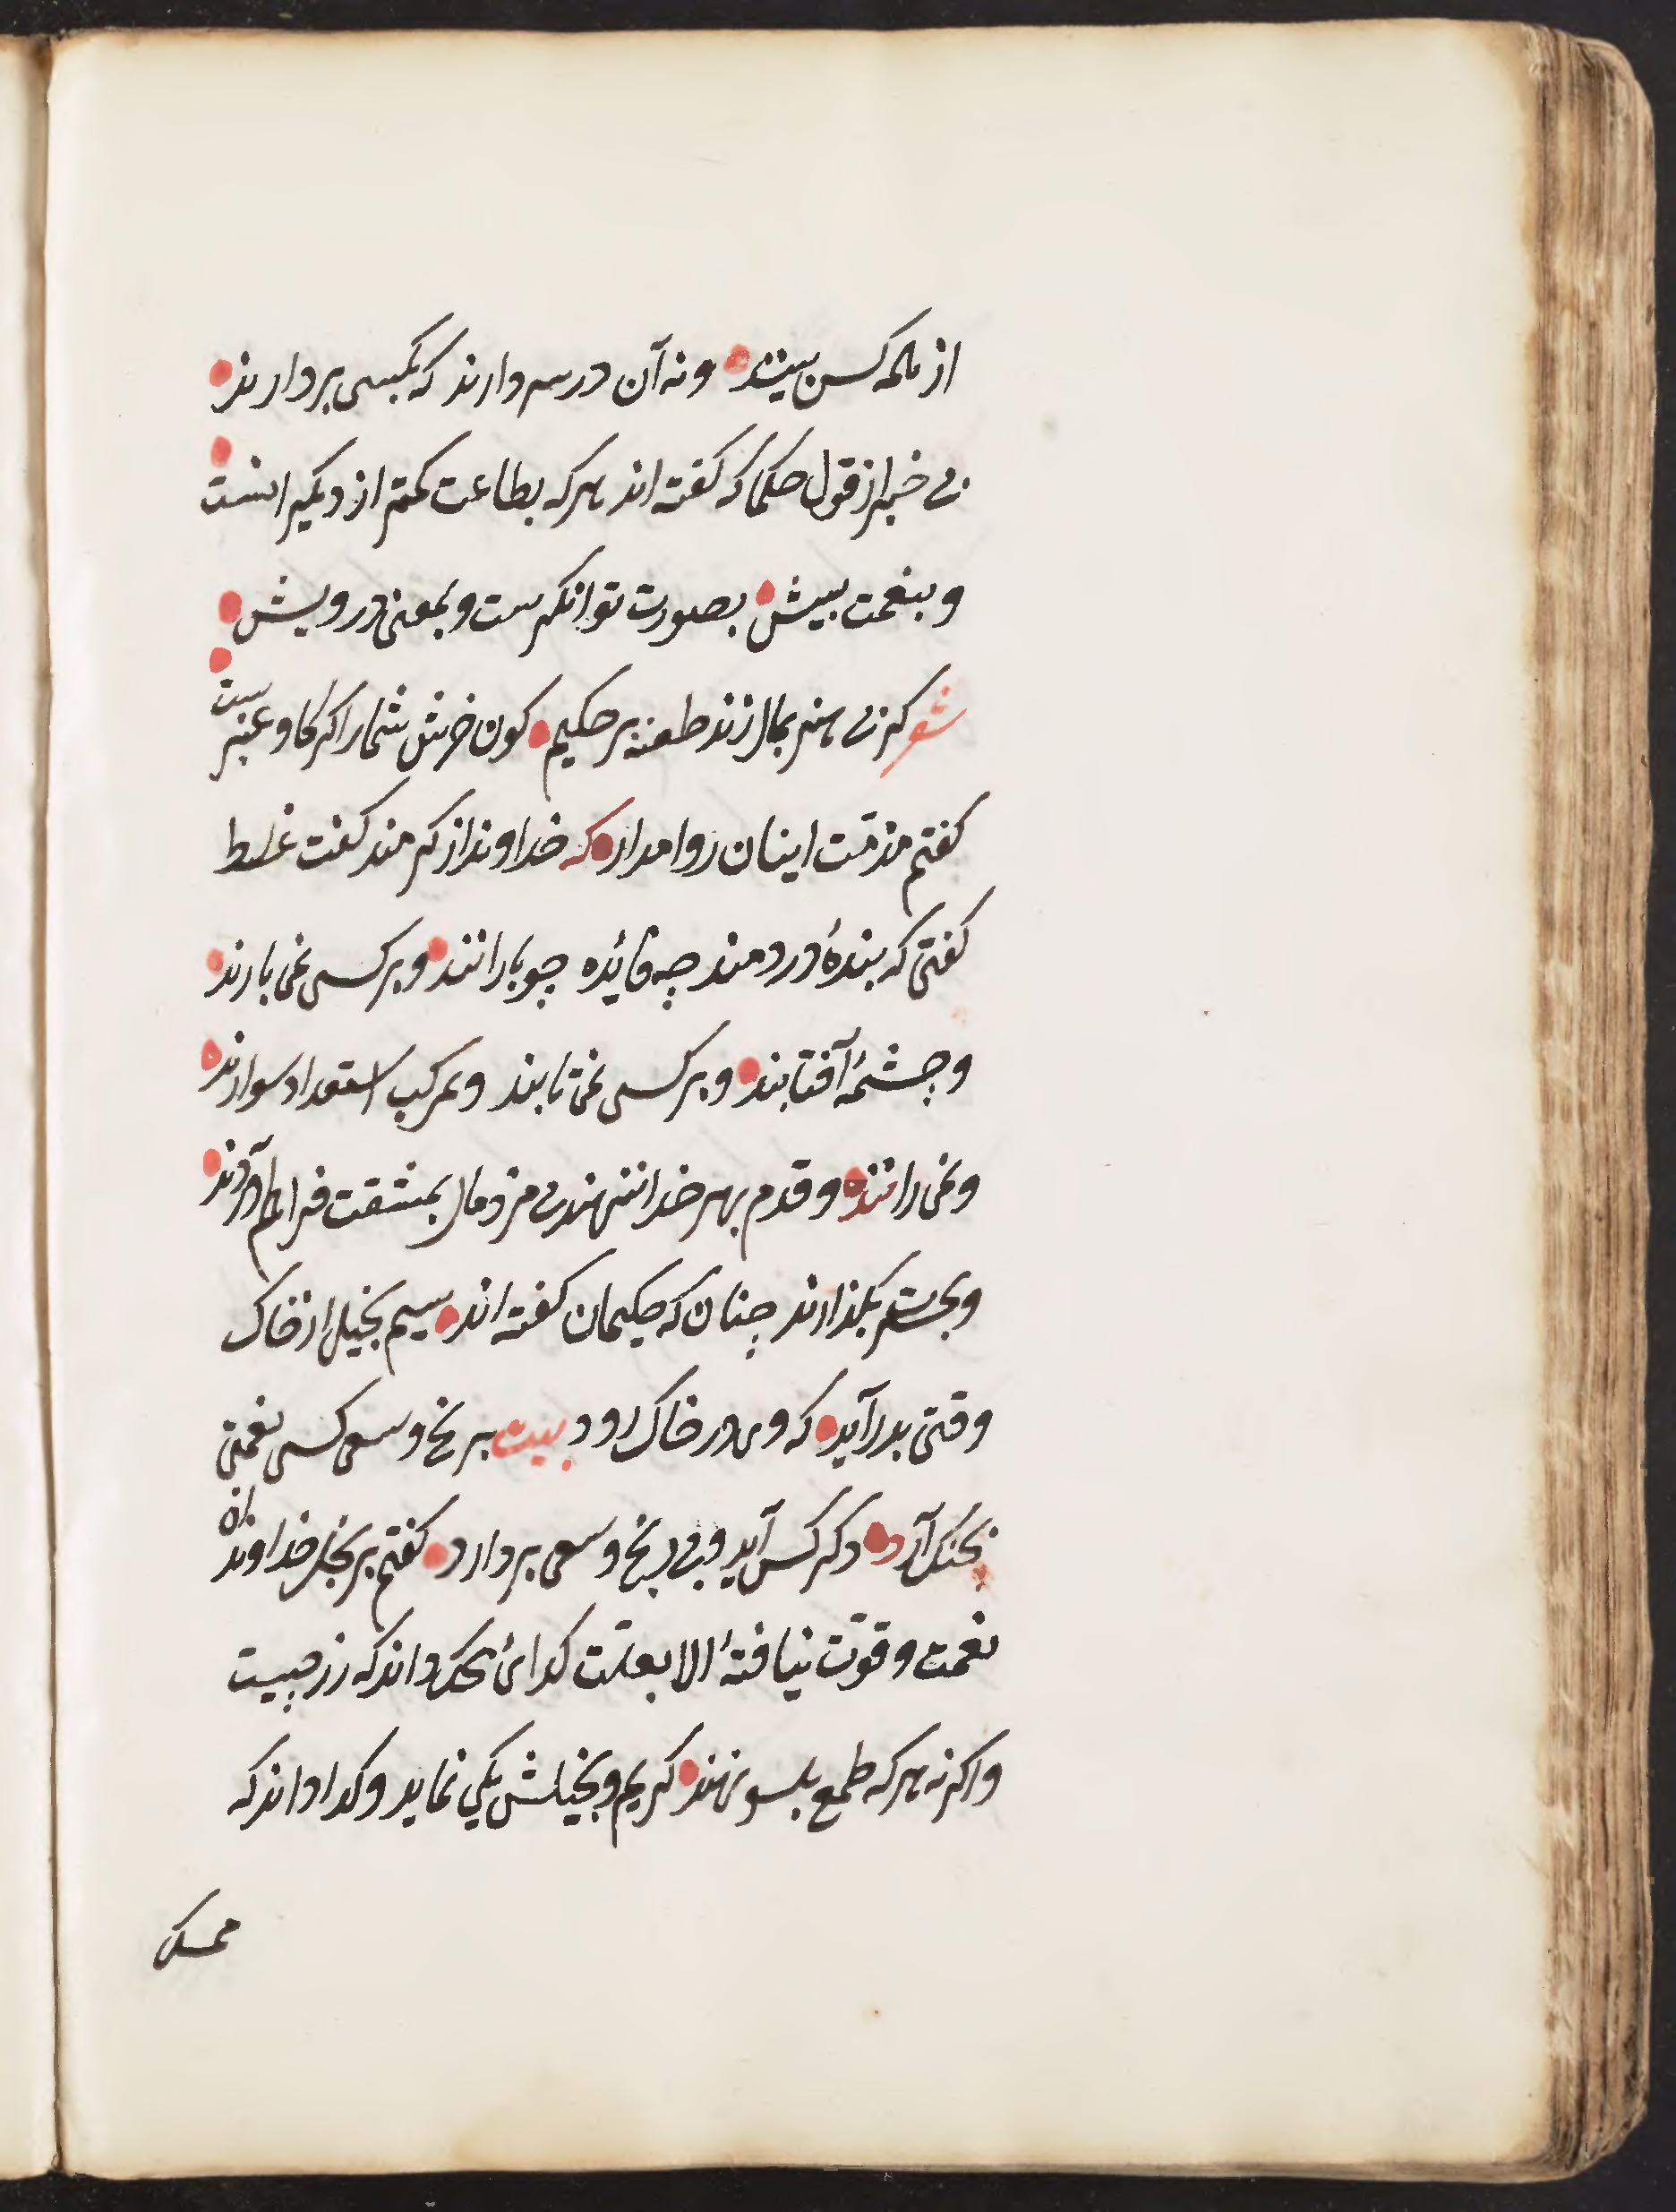 از همه کس بینند ونه آن در سر دارند که بکسی بردارند
بی خبر از قول حکما که کفته اند هرکه بطاعت کمتر از دیکرانست
وبنعمت بیش بصورت توانکرست وبمعنی درویش
شعر کر بی هنر بمال زند طعنه بر حکیم کون خرش شمار اکر کاو عنبر ست
کفتم مذمّت اینان روا مدار که خداوند از کرمند کفت غلط
کفتی که بندۀ درد مند چه فائده چو بارانند وبر کسی نمی بارند
وچشمۀ آفتابند وبر کسی نمی تابند وبمرکب استعداد سوارند
ونمی رانند وقدم بهر خدا ننهند بی من ومال بمشقت فراهم آورند
وبحسرت بگذارند چنان که حکیمان کفته اند سیم بخیل از خاک
وقتی بدر آید که وی در خاک رود بیت برنج وسعی کسی نعمتی
بچنک آرد دکر کس آید وبی رنج وسعی بردارد کفتم بر بخل خداوندان
نعمت وقوّت نیافتۀ الا بعلّت کدائی محک داند که زر چیست
واکر نه هرکه طمع بیکسو نهند کریم وبخیلش یکی نماید وکدا داند که
ممسک